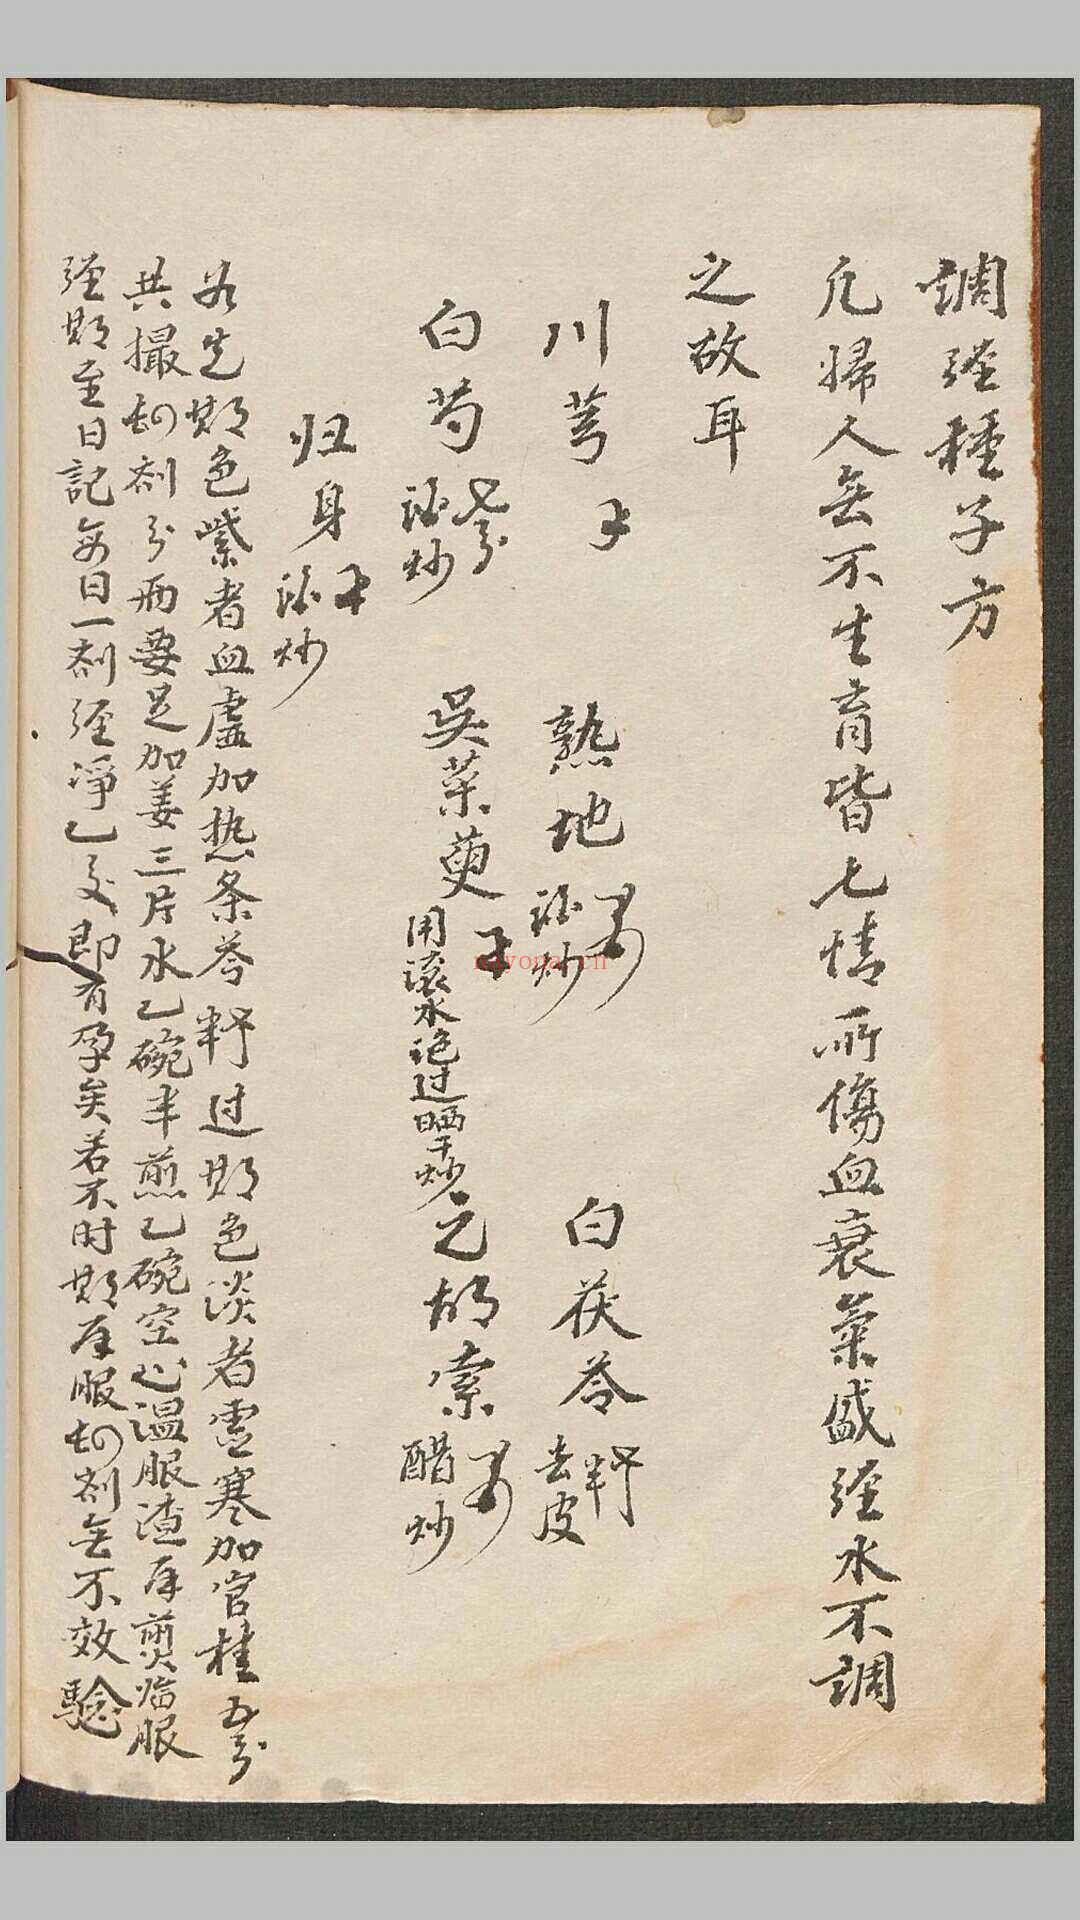 調經種子方
凡婦人無不生育皆七情所傷血衰氣盛經水不調
之故耳
川芎 熟地 酒炒 白茯苓 去皮
白芍 七分 酒炒 吳茱萸 用滚水泡过晒干炒 元胡索 醋炒
归身 酒炒
若先期色紫者血虛加热条芩 过期色淡者虛寒加官桂五分
共撮四剂分两要足加姜三片水乙碗半煎乙碗空心温服渣再煎临服
經期至日記每日一剂經净乙交即有孕矣若不对期再服四剂無不效驗
nayona.cn